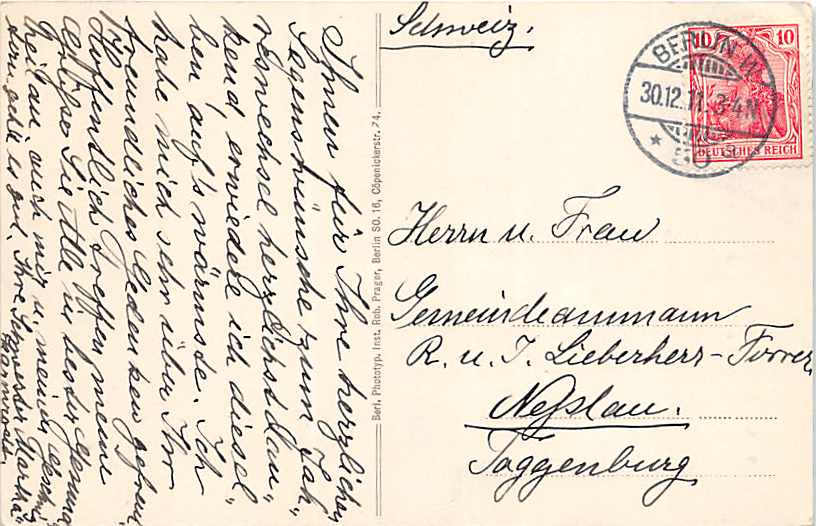 Ihnen für Ihre herzlichen
Segenswünsche zum Jah-
reswechsel herzlichst dan-
kend, erwiedere ich diesel-
ben auf's wärmste. Ich
habe mich sehr über Ihr
freundliches Gedenken gefreut.
Hoffentlich treffen meine
Grüße Sie Alle in bester Gesund
heit an, auch mir u. meinen
geht es gut. Ihre Schwester Martha
Schweiz.
BERLIN W
30.12.11. 3-4N
10 10
DEUTSCHES REICH
Herrn u. Frau
Gemeindeammann
R. u. J. Lieberherr-Forrer
Neßlau.
Toggenburg
Berl. Phototyp. Inst. Rob. Prager, Berlin SO. 16, Cöpenickerstr. 74.